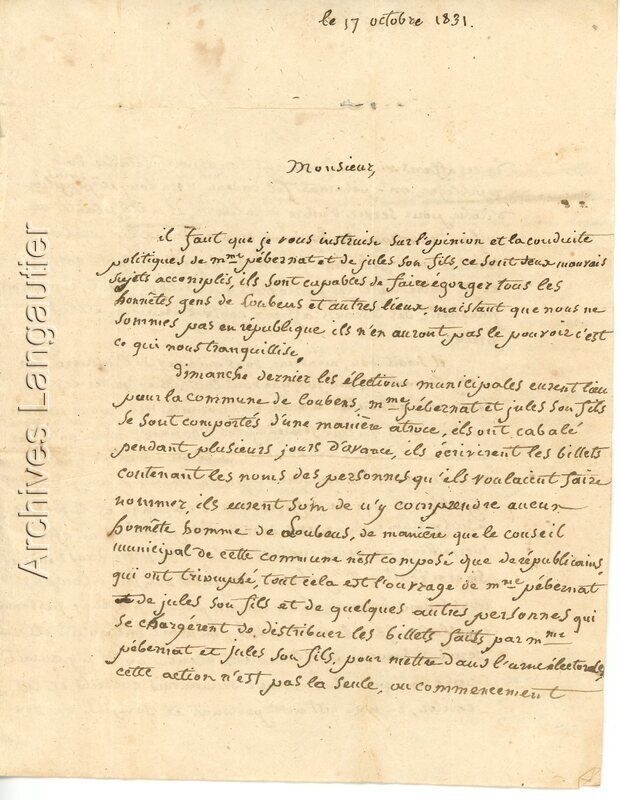 le 17 octobre 1831.
Monsieur,
il faut que je vous instruise sur l'opinion et la conduite
politiques de mme pébernat et de jules son fils, ce sont deux mauvais
sujets accomplis, ils sont capables de faire égorger tous les
honnêtes gens de Loubens et autres lieux, mais tant que nous ne
sommes pas en république ils n'en auront pas le pouvoir c'est
ce qui nous tranquillise.
dimanche dernier les élections municipales eurent lieu
pour la commune de loubens, mme pébernat et jules son fils
se sont comportés d'une manière atroce, ils ont cabalé
pendant plusieurs jours d'avance, ils écrivirent les billets
contenant les noms des personnes qu'ils voulaient faire
nommer, ils eurent soin de n'y comprendre aucun
honnête homme de Loubens, de manière que le conseil
municipal de cette commune n'est composé que de républicains
qui ont triomphé, tout cela est l'ouvrage de mme pébernat
de jules son fils et de quelques autres personnes qui
se chargèrent de distribuer les billets faits par mme
pébernat et jules son fils, pour mettre dans l'urne électorale,
cette action n'est pas la seule, au commencement
Archives Langautier